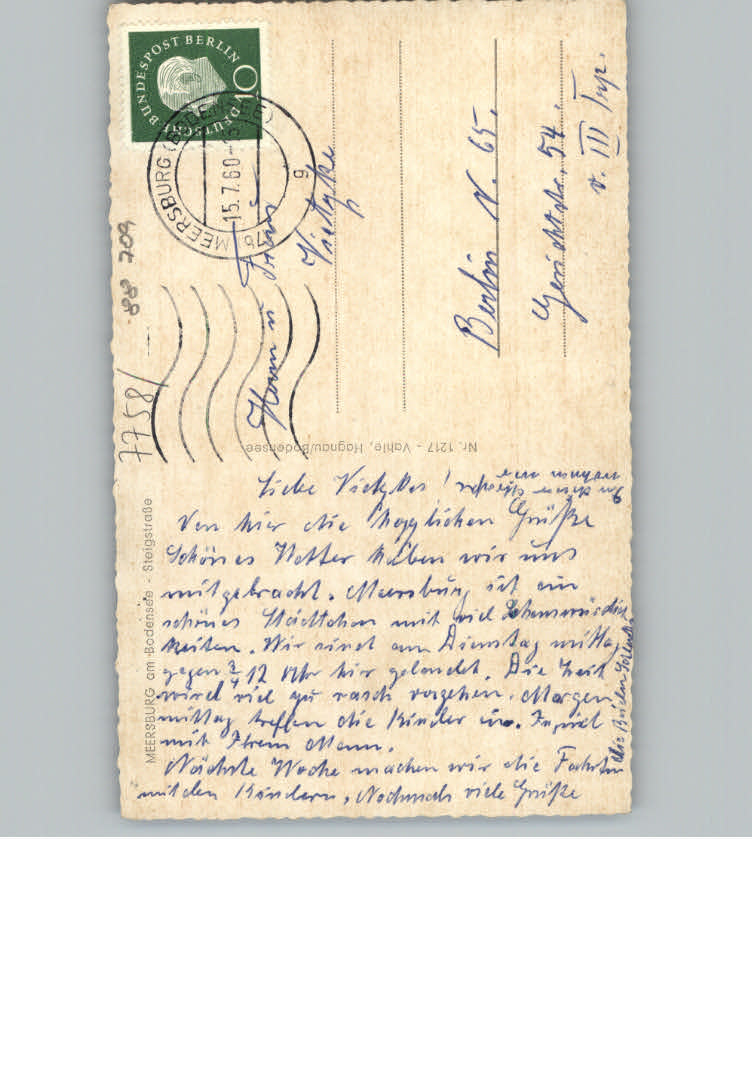 DEUTSCHE BUNDESPOST BERLIN
10
MEERSBURG (BODENSEE)
15.7.60
g
88 709
7758/
Herrn u. Frau
Vietzke
Berlin N. 65.
Gerichtstr. 54.
v. III Trp.
Nr. 1217 - Vahle, Hagnau/Bodensee
MEERSBURG am Bodensee - Steigstraße
Liebe Vietzkes!
Von hier die herzlichen Grüße
Schönes Wetter haben wir uns
mitgebracht. Meersburg ist ein
schönes Städtchen mit viel Sehenswürdig
keiten. Wir sind am Dienstag mittag
gegen 3/4 12 Uhr hier gelandet. Die Zeit
wird viel zu rasch vergehen. Morgen
mittag treffen die Kinder ein. Ingrid
mit Ihrem Mann.
Nächste Woche machen wir die Fahrten
mit den Kindern. Nochmals viele Grüße
die Beiden